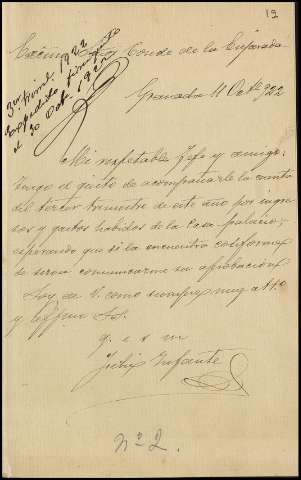 12
Excmo Sr Conde de la Enjarada
3er trim. 1922
Expedido finiqto
el 30 Oct. 1922
Granada 11 Octe 922
Mi respetable Jefe y amigo:
Tengo el gusto de acompañarle la cuenta
del tercer trimestre de este año por ingre
sos y gastos habidos de la Casa palacio;
esperando que si la encuentra conforme
se sirva comunicarme su aprobacion.
Soy de V. como siempre muy atto
y affmo SS.
q. e s m
Felix Infante
Nº 2.